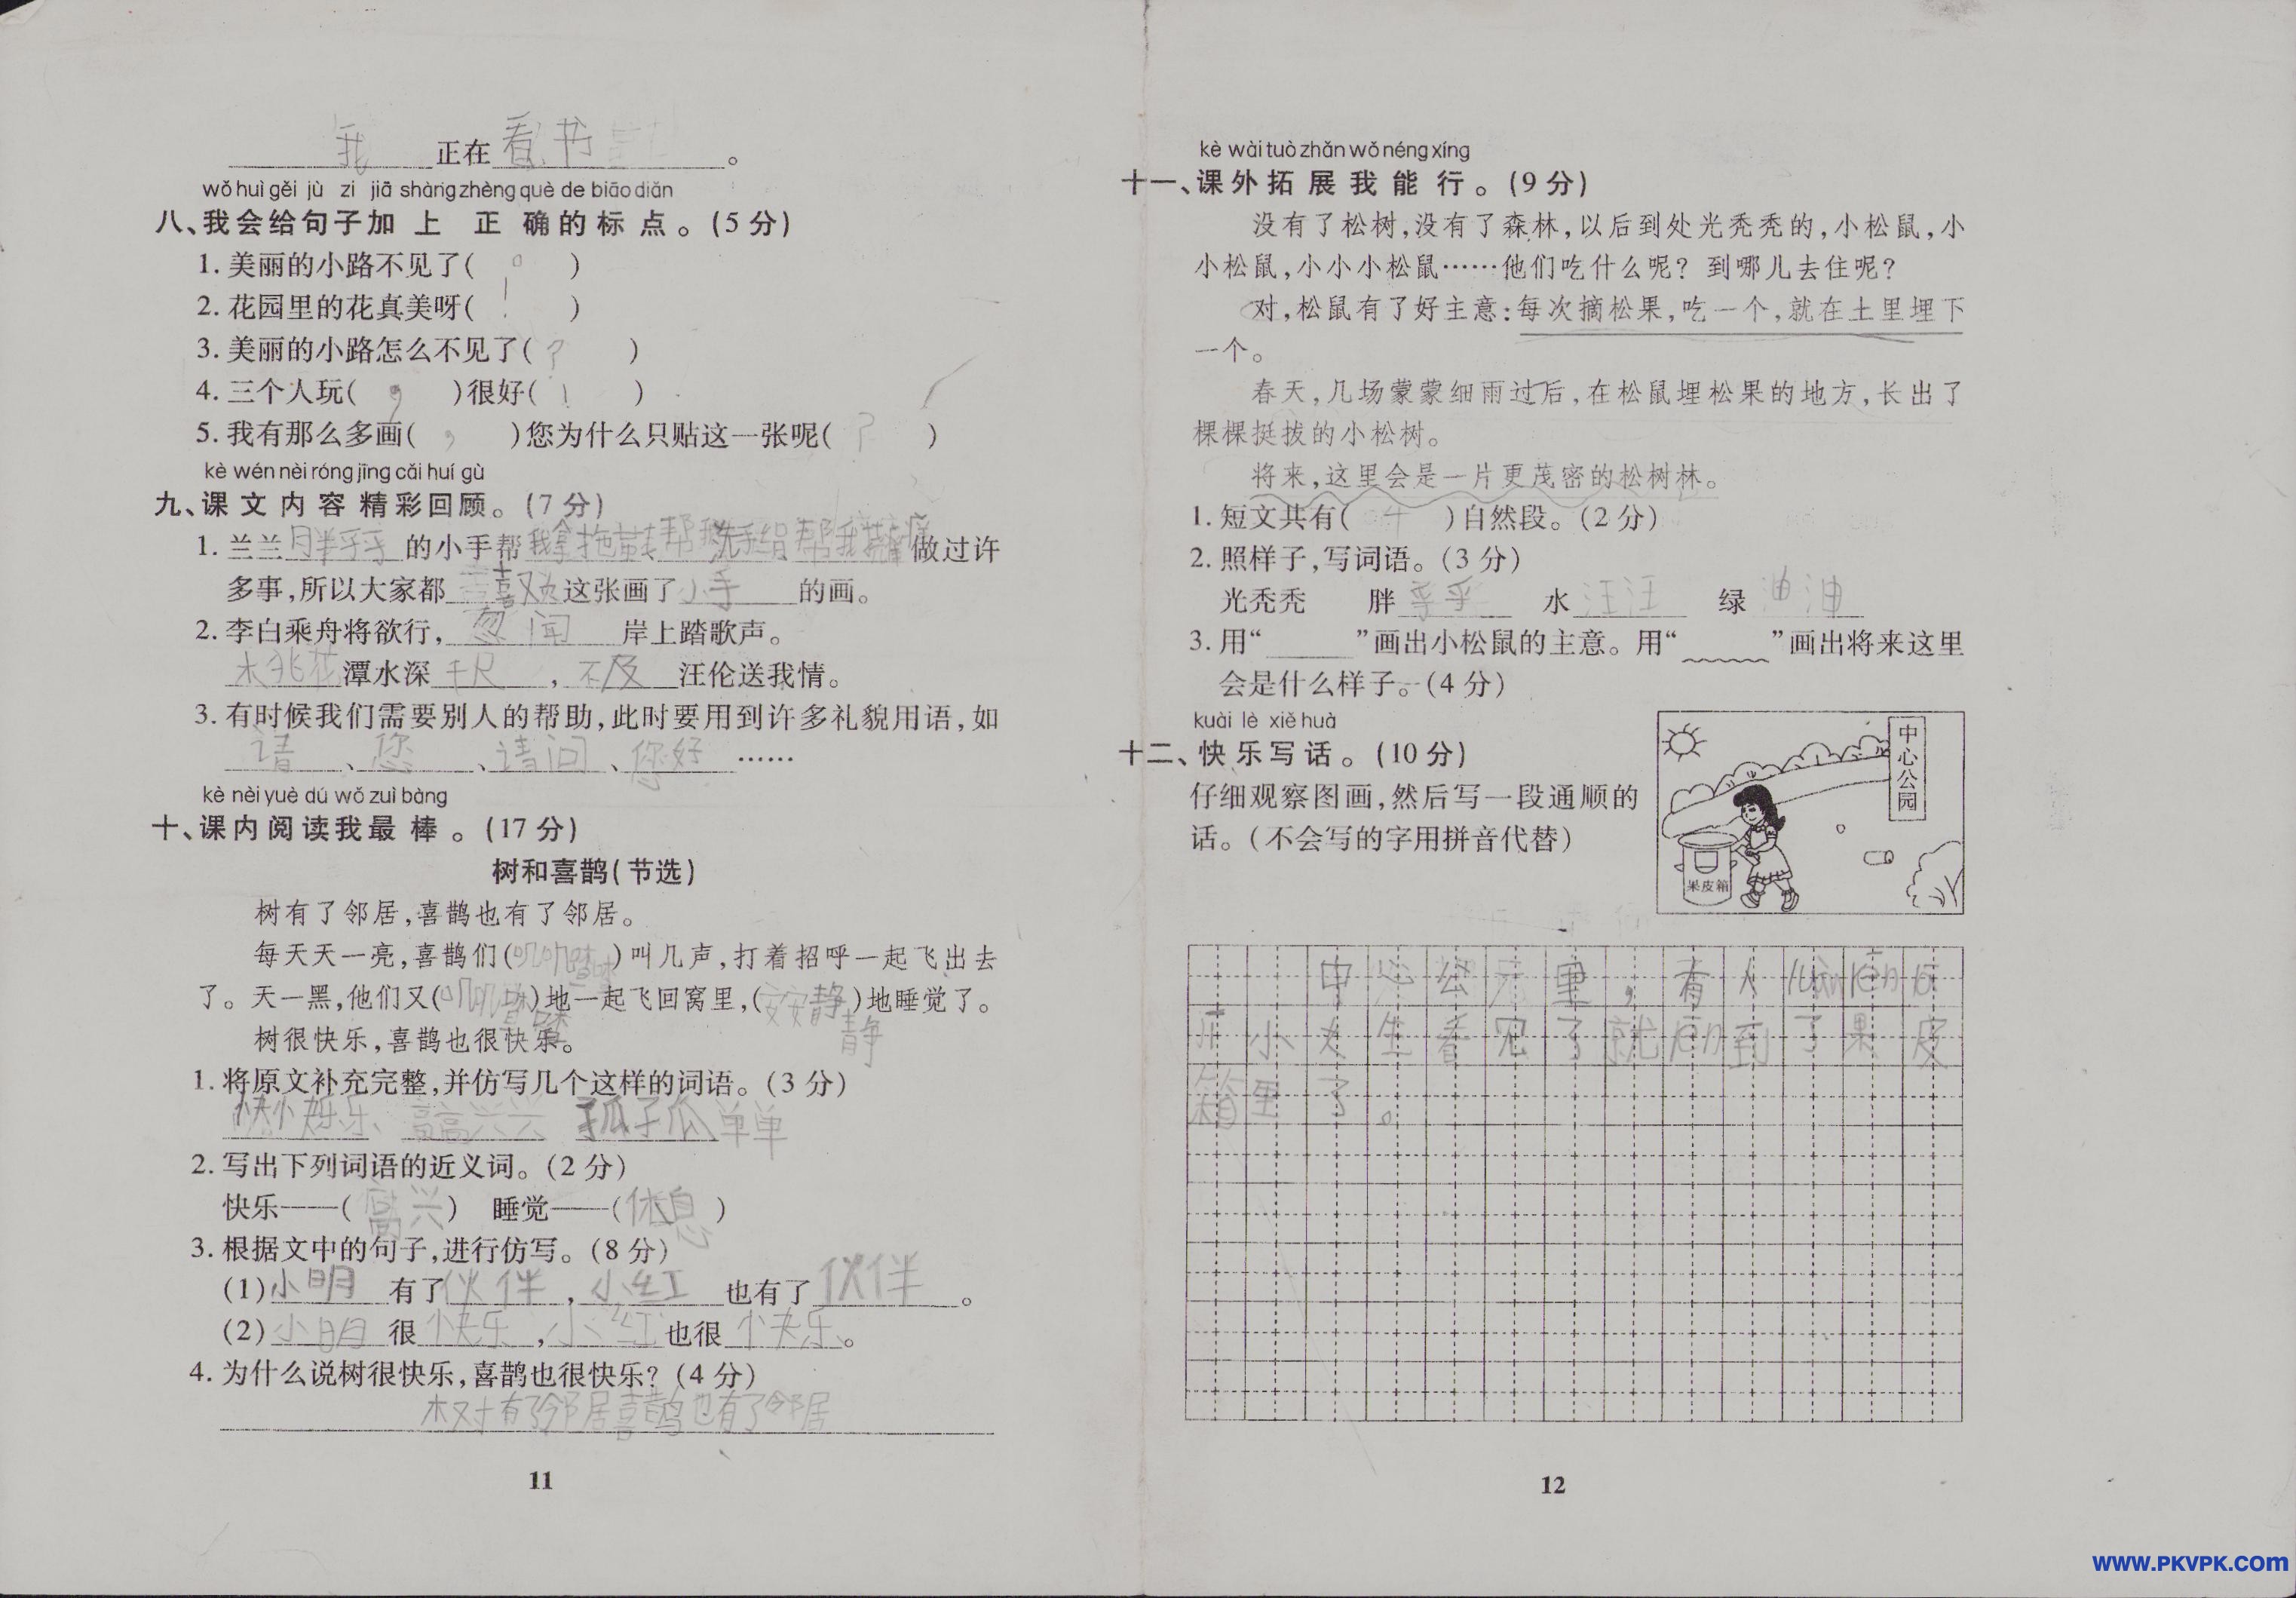 我 正在 看书 。
wǒ huì gěi jù zi jiā shàng zhèng què de biāo diǎn
八、我会给句子加上正确的标点。(5分)
1. 美丽的小路不见了( 。 )
2. 花园里的花真美呀( ！ )
3. 美丽的小路怎么不见了( ？ )
4. 三个人玩( ， )很好( ！ )
5. 我有那么多画( ， )您为什么只贴这一张呢( ？ )
kè wén nèi róng jīng cǎi huí gù
九、课文内容精彩回顾。(7分)
1. 兰兰胖乎乎的小手帮我拿拖鞋帮我洗手绢帮我挠痒做过许
多事,所以大家都喜欢这张画了小手的画。
2. 李白乘舟将欲行,忽闻岸上踏歌声。
桃花潭水深千尺,不及汪伦送我情。
3. 有时候我们需要别人的帮助,此时要用到许多礼貌用语,如
请、您、请问、您好……
kè nèi yuè dú wǒ zuì bàng
十、课内阅读我最棒。(17分)
树和喜鹊(节选)
树有了邻居,喜鹊也有了邻居。
每天天一亮,喜鹊们(叽叽喳喳)叫几声,打着招呼一起飞出去
了。天一黑,他们又(叽叽喳喳)地一起飞回窝里,(安安静静)地睡觉了。
树很快乐,喜鹊也很快乐。
1. 将原文补充完整,并仿写几个这样的词语。(3分)
快快乐乐 高高兴兴 孤孤单单
2. 写出下列词语的近义词。(2分)
快乐——(高兴) 睡觉——(休息)
3. 根据文中的句子,进行仿写。(8分)
(1)小明有了伙伴,小红也有了伙伴。
(2)小明很快乐,小红也很快乐。
4. 为什么说树很快乐,喜鹊也很快乐?(4分)
树有了邻居喜鹊也有了邻居
11
kè wài tuò zhǎn wǒ néng xíng
十一、课外拓展我能行。(9分)
没有了松树,没有了森林,以后到处光秃秃的,小松鼠,小
小松鼠,小小小松鼠……他们吃什么呢? 到哪儿去住呢?
对,松鼠有了好主意:每次摘松果,吃一个,就在土里埋下
一个。
春天,几场蒙蒙细雨过后,在松鼠埋松果的地方,长出了
棵棵挺拔的小松树。
将来,这里会是一片更茂密的松树林。
1. 短文共有( )自然段。(2分)
2. 照样子,写词语。(3分)
光秃秃 胖乎乎 水汪汪 绿油油
3. 用“____”画出小松鼠的主意。用“﹏﹏”画出将来这里
会是什么样子。(4分)
kuài lè xiě huà
十二、快乐写话。(10分)
仔细观察图画,然后写一段通顺的
话。(不会写的字用拼音代替)
中心公园
果皮箱
中心公园里,有人
小女生看见了就 到了果皮
箱里了。
12
www.PKVPK.com